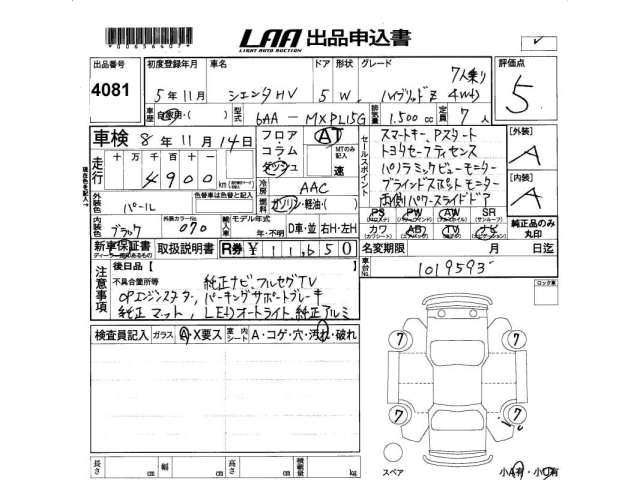 *00656407*
LAA 出品申込書
LIGHT AUTO AUCTION
出品番号 4081
初度登録年月 車名 ドア 形状 グレード 評価点
5年11月 シエンタHV 5 W ハイブリッドZ 4WD 7人乗り 5
車歴 自家用・( ) 型式 6AA-MXPL15G 排気量 1.500 cc 定員 7人
車検 8年11月14日
フロア・コラム・ダッシュ AT MTのみ記入 速
走行 十万千百十一 4900 km
冷房 AAC
燃料 ガソリン・軽油・( )
セールスポイント
スマートキー、Pスタート
トヨタセーフティセンス
パノラミックビューモニター
ブラインドスポットモニター
両側パワースライドドア
[外装] A
[内装] A
外装色 パール 色替車は色替と記入
内装色 ブラック 外装カラーNo. 070
輸入車 モデル年式 年・不明 D車・並 右H・左H
PS PW AW SR (サンルーフ)
カワ (カワシート) AB (エアバック) TV ナビ (ナビゲーション)
純正品のみ丸印
新車保証書 ディーラー捺印のあるもの 取扱説明書 R券 ¥11,650
名変期限 月 日迄
車台No. 1019593
現在色を記入↑
注意事項
後日品【 】
不具合箇所等
純正ナビ、フルセグTV
OPエンジンスターター、パーキングサポートブレーキ
純正マット、LEDオートライト、純正アルミ
ロック車
検査員記入 ガラス A・X要ス 室内シート A・コゲ・穴・汚れ・破れ
7 7
7 7
長さ cm 幅 cm 高さ cm 積載量 kg
スペア
小A有・小U有